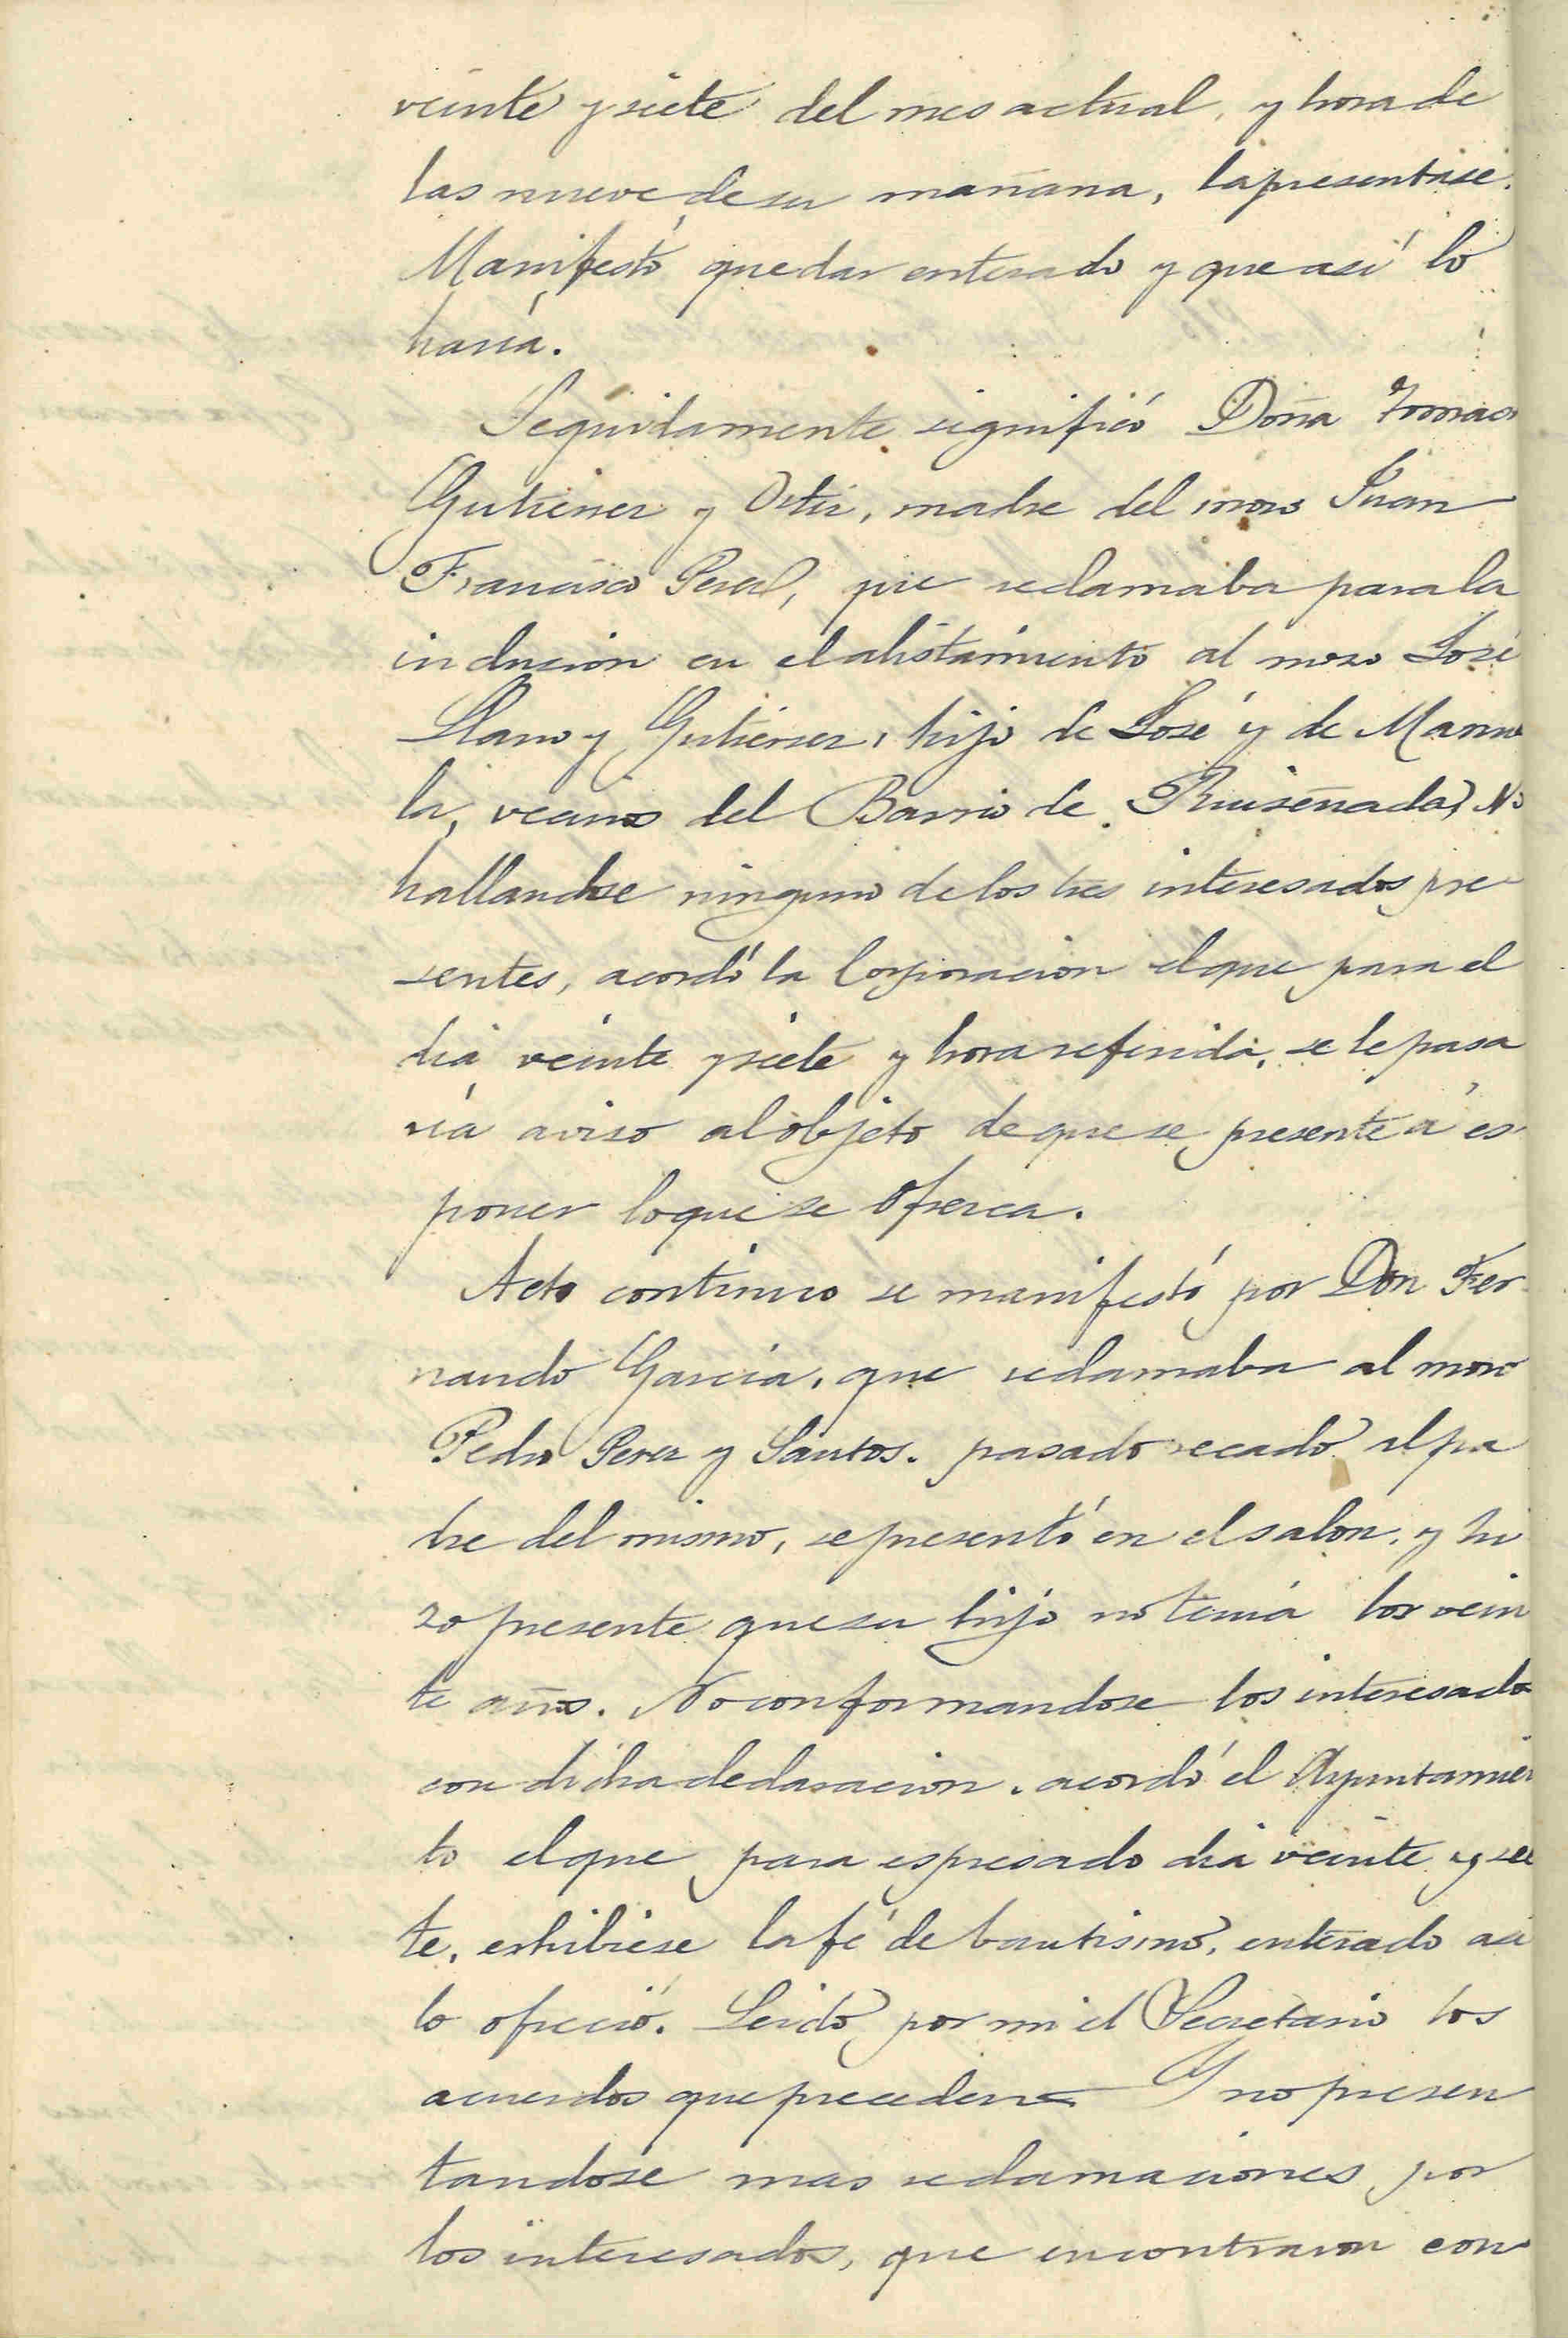 veinte y siete del mes actual, y hora de
las nueve de su mañana, la presentase.
Manifestó quedar enterado y que así lo
haría.
Seguidamente significó Doña Tomasa
Gutierrez y Ortiz, madre del mozo Juan
Francisco Perez, que reclamaba para la
inclusion en el alistamiento al mozo José
Llano y Gutierrez, hijo de José y de Manue
la, vecinos del Barrio de Ruiseñada, No
hallandose ninguno de los tres interesados pre
sentes, acordó la Corporacion el que para el
dia veinte y siete y hora referida, se le pasa
ría aviso al objeto de que se presente á es
poner lo que se ofrezca.
Acto continuo se manifestó por Don Fer
nando Garcia, que reclamaba al mozo
Pedro Perez y Santos. pasado recado al pa
dre del mismo, se presentó en el salon, y hi
zo presente que su hijo no tenia los vein
te años. No conformandose los interesados
con dicha declaracion, acordó el Ayuntamien
to el que para espresado dia veinte y sie
te, exhibiese la fé de bautismo, enterado asi
lo ofreció. Leido por mi el Secretario los
acuerdos que preceden= Y no presen
tandose mas reclamaciones por
los interesados, que encontraron con